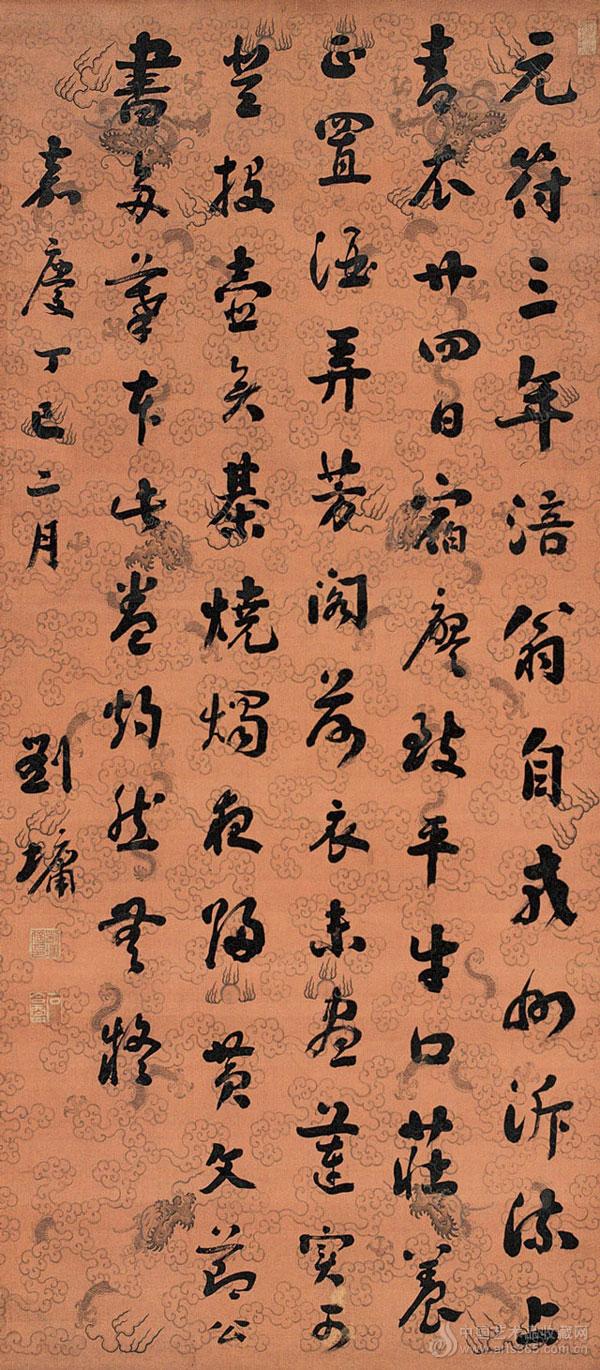 元符三年涪翁自戎州泝流上
青衣廿四日宿廖致平牛口莊養
正置酒弄芳閣荷衣未盡蓮實可
登投壺奕棊燒燭夜歸 黄文節公
書多摹本此卷灼然無疑
嘉慶丁巳二月 劉墉
中国艺术品收藏网
www.arts365.com